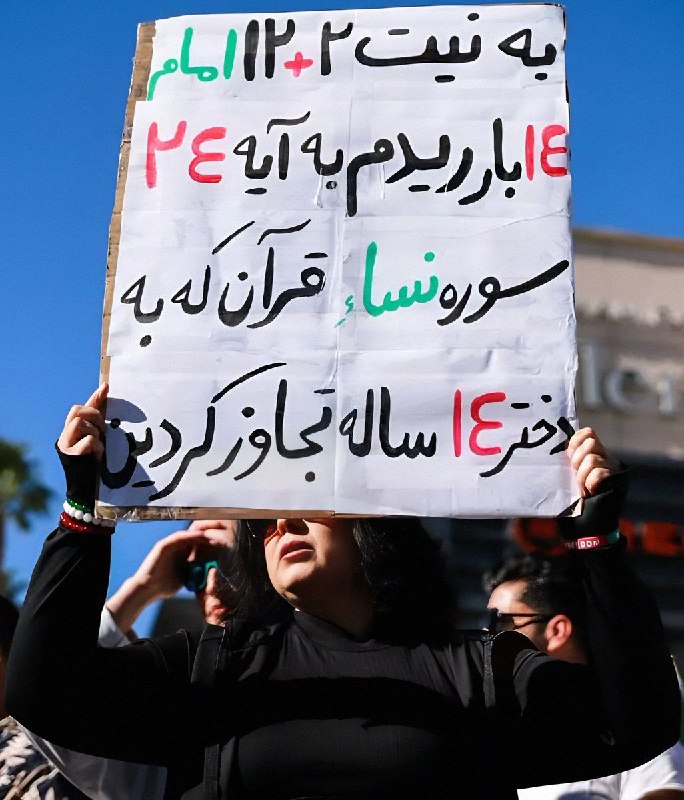 به نیت ۲+۱۲ امام
۱٤ بار ریدم به آیه ۲٤
سوره نساءِ قرآن که به
دختر ۱٤ ساله تجاوز کردین